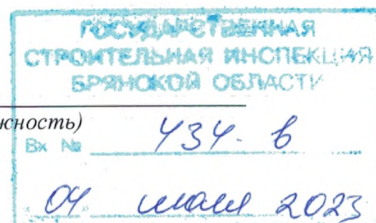 ГОСУДАРСТВЕННАЯ
СТРОИТЕЛЬНАЯ ИНСПЕКЦИЯ
БРЯНСКОЙ ОБЛАСТИ
жность)
Вх № 434-в
04 июля 2023